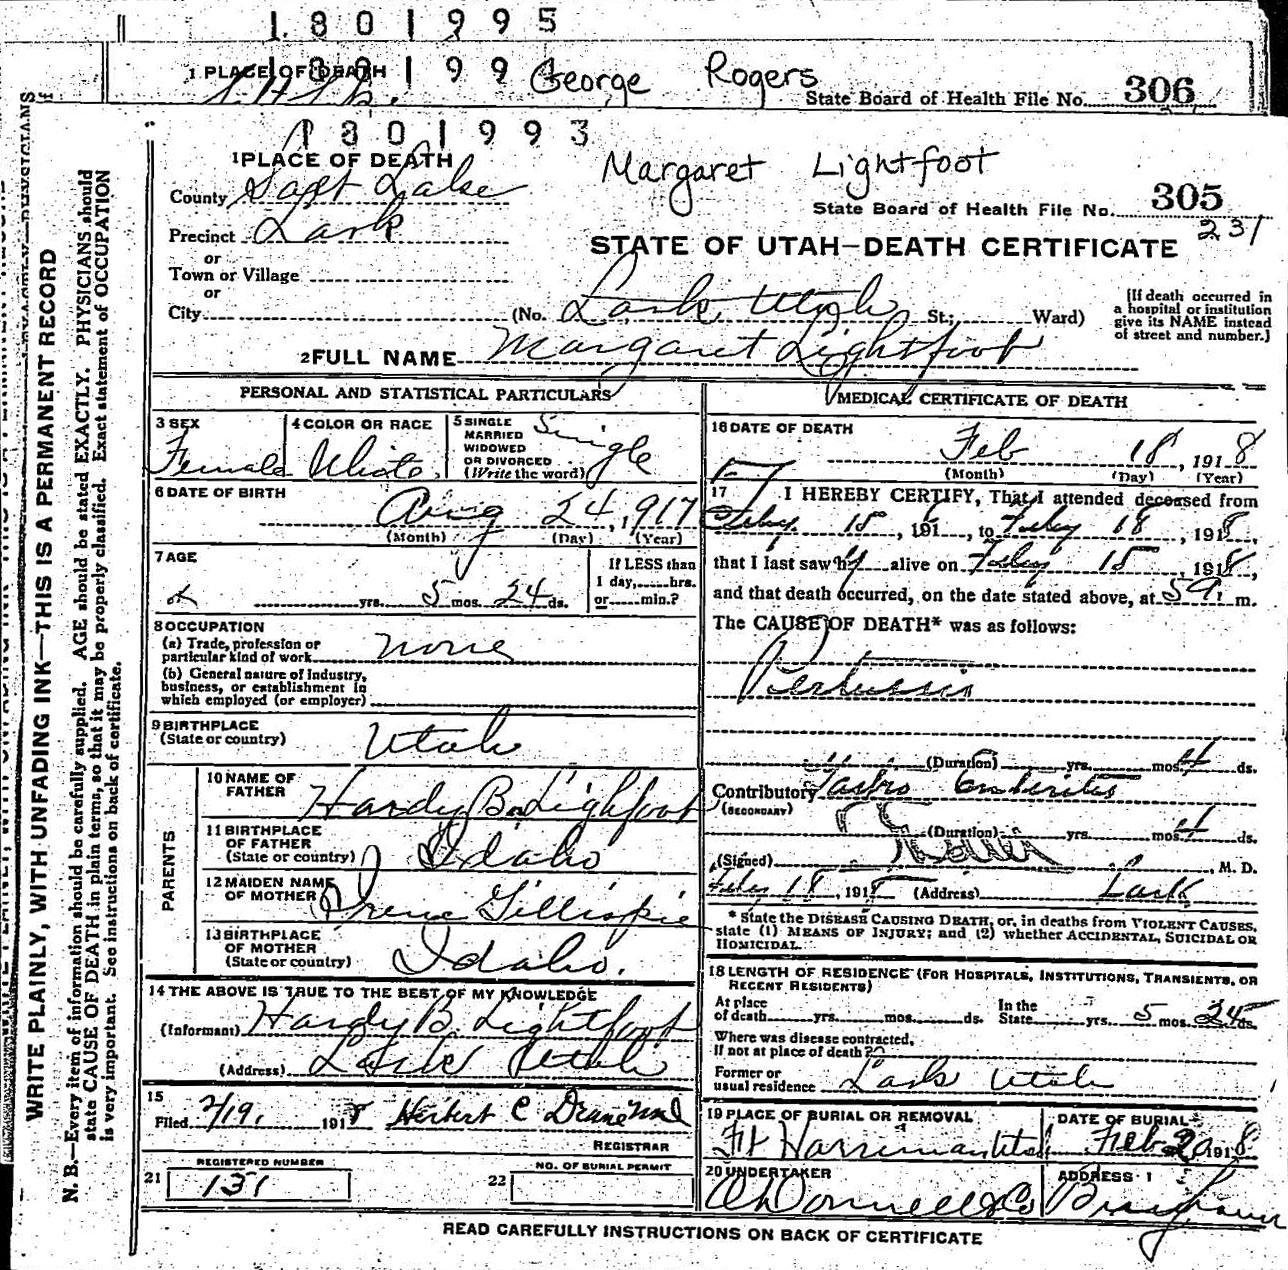 1801995
1 PLACE OF DEATH
George Rogers
State Board of Health File No. 306
1801993
1 PLACE OF DEATH
Margaret Lightfoot
County Salt Lake
State Board of Health File No. 305
231
Precinct Lark
STATE OF UTAH—DEATH CERTIFICATE
or
Town or Village
or
City (No. Lark Utah St.; Ward)
[If death occurred in
a hospital or institution
give its NAME instead
of street and number.]
2 FULL NAME Margaret Lightfoot
PERSONAL AND STATISTICAL PARTICULARS
3 SEX
Female
4 COLOR OR RACE
White
5 SINGLE
MARRIED
WIDOWED
OR DIVORCED
(Write the word)
Single
6 DATE OF BIRTH
Aug 24, 1917
(Month) (Day) (Year)
7 AGE
yrs. 5 mos. 24 ds.
If LESS than
1 day, hrs.
or min.?
8 OCCUPATION
(a) Trade, profession or
particular kind of work none
(b) General nature of industry,
business, or establishment in
which employed (or employer)
9 BIRTHPLACE
(State or country) Utah
PARENTS
10 NAME OF
FATHER Hardy B. Lightfoot
11 BIRTHPLACE
OF FATHER
(State or country) Idaho
12 MAIDEN NAME
OF MOTHER Irene Gillispie
13 BIRTHPLACE
OF MOTHER
(State or country) Idaho.
14 THE ABOVE IS TRUE TO THE BEST OF MY KNOWLEDGE
(Informant) Hardy B. Lightfoot
(Address) Lark Utah
15
Filed 2/19, 1918 Herbert C Drane Md
REGISTRAR
21 REGISTERED NUMBER
131
22 NO. OF BURIAL PERMIT
MEDICAL CERTIFICATE OF DEATH
16 DATE OF DEATH
Feb 18, 1918
(Month) (Day) (Year)
17 I HEREBY CERTIFY, That I attended deceased from
Feby. 15, 191 , to Feby 18, 1918,
that I last saw h alive on Feby 15, 1918,
and that death occurred, on the date stated above, at 5 a. m.
The CAUSE OF DEATH* was as follows:
Pertussis
(Duration) yrs. mos. 4 ds.
Contributory Gastro Enteritis
(SECONDARY)
(Duration) yrs. mos. 4 ds.
(Signed) , M. D.
Feby 18, 1918 (Address) Lark
* State the DISEASE CAUSING DEATH, or, in deaths from VIOLENT CAUSES,
state (1) MEANS OF INJURY; and (2) whether ACCIDENTAL, SUICIDAL OR
HOMICIDAL.
18 LENGTH OF RESIDENCE (FOR HOSPITALS, INSTITUTIONS, TRANSIENTS, OR
RECENT RESIDENTS)
At place
of death yrs. mos. ds.
In the
State yrs. 5 mos. 24 ds.
Where was disease contracted,
if not at place of death?
Former or
usual residence Lark Utah
19 PLACE OF BURIAL OR REMOVAL
Ft Harriman Utah
DATE OF BURIAL
Feb 20 1918
20 UNDERTAKER
O'Donnell & Co
ADDRESS
Bingham
READ CAREFULLY INSTRUCTIONS ON BACK OF CERTIFICATE
WRITE PLAINLY, WITH UNFADING INK—THIS IS A PERMANENT RECORD
N. B.—Every item of information should be carefully supplied. AGE should be stated EXACTLY. PHYSICIANS should
state CAUSE OF DEATH in plain terms, so that it may be properly classified. Exact statement of OCCUPATION
is very important. See instructions on back of certificate.